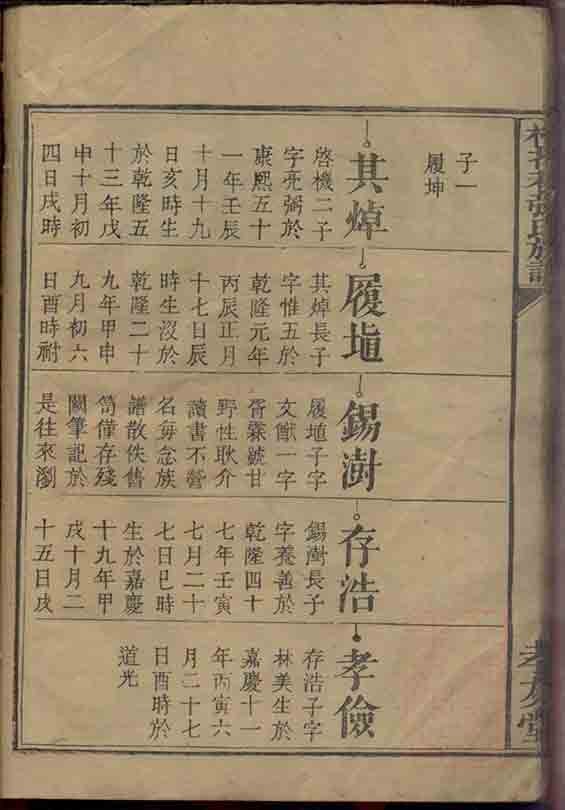 張氏族譜
孝友堂
子一
履坤
其焯
啓機二子
字亮弼於
康熙五十
一年壬辰
十月十九
日亥時生
於乾隆五
十三年戊
申十月初
四日戌時
履埴
其焯長子
字惟五於
乾隆元年
丙辰正月
十七日辰
時生沒於
乾隆二十
九年甲申
九月初六
日酉時祔
錫澍
履埴子字
文猷一字
胥霖號甘
野性耿介
讀書不營
名每念族
譜散佚舊
笥僅存殘
闕筆記於
是往來瀏
存浩
錫澍長子
字養善於
乾隆四十
七年壬寅
七月二十
七日巳時
生於嘉慶
十九年甲
戌十月二
十五日戌
孝儉
存浩子字
林美生於
嘉慶十一
年丙寅六
月二十七
日酉時於
道光